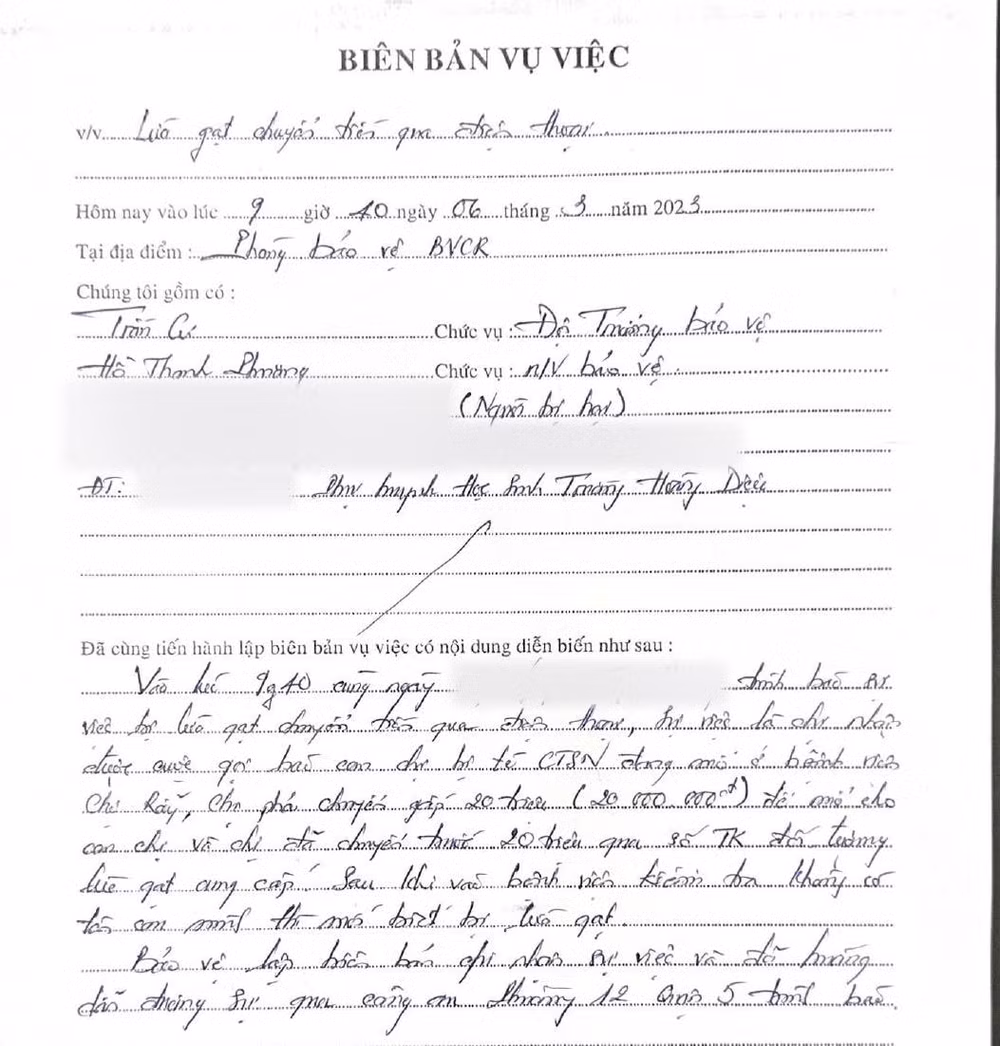 BIÊN BẢN VỤ VIỆC
v/v Lừa gạt chuyển tiền qua điện thoại
Hôm nay vào lúc 9 giờ 40 ngày 06 tháng 3 năm 2023
Tại địa điểm : Phòng bảo vệ BVCR
Chúng tôi gồm có :
Trần Cư Chức vụ : Đội Trưởng bảo vệ
Hồ Thanh Phương Chức vụ : n/v bảo vệ
(Người bị hại)
ĐT: Phụ huynh Học Sinh Trường Hoàng Diệu
Đã cùng tiến hành lập biên bản vụ việc có nội dung diễn biến như sau :
Vào lúc 9g40 cùng ngày trình báo sự
việc bị lừa gạt chuyển tiền qua điện thoại, sự việc là chị nhận
được cuộc gọi báo con chị bị té CTSN đang mổ ở bệnh viện
Chợ Rẫy, chị phải chuyển gấp 20 triệu (20 000 000đ) để mổ cho
con chị và chị đã chuyển trước 20 triệu qua số TK đối tượng
lừa gạt cung cấp. Sau khi vào bệnh viện kiểm tra không có
tên con mình thì mới biết bị lừa gạt.
Bảo vệ lập biên bản ghi nhận sự việc và đã hướng
dẫn đương sự qua công an Phường 12 Quận 5 trình báo.